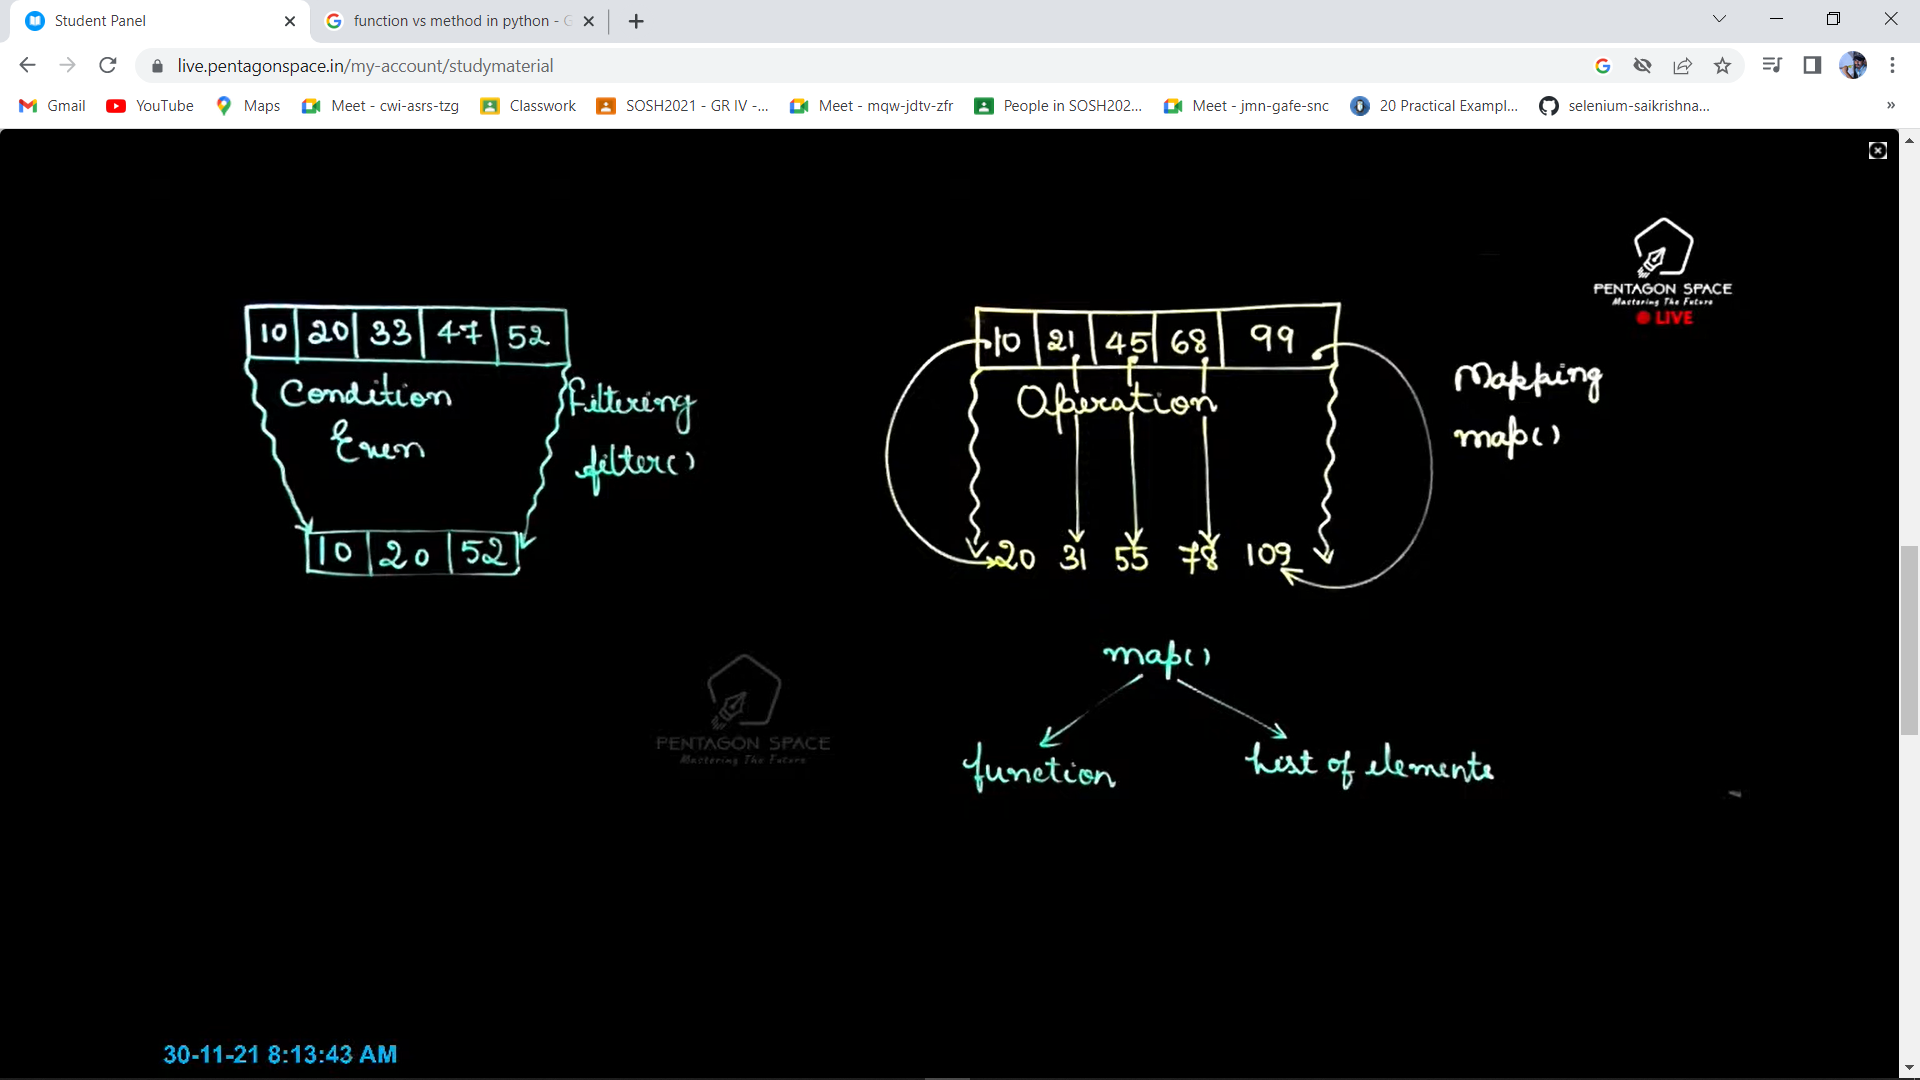 Student Panel
function vs method in python - G
live.pentagonspace.in/my-account/studymaterial
Gmail
YouTube
Maps
Meet - cwi-asrs-tzg
Classwork
SOSH2021 - GR IV -...
Meet - mqw-jdtv-zfr
People in SOSH202...
Meet - jmn-gafe-snc
20 Practical Exampl...
selenium-saikrishna...
PENTAGON SPACE
Mastering The Future
LIVE
10 20 33 47 52
Condition
Even
Filtering
filter()
10 20 52
10 21 45 68 99
Operation
Mapping
map()
20 31 55 78 109
map()
function
List of elements
PENTAGON SPACE
Mastering The Future
30-11-21 8:13:43 AM